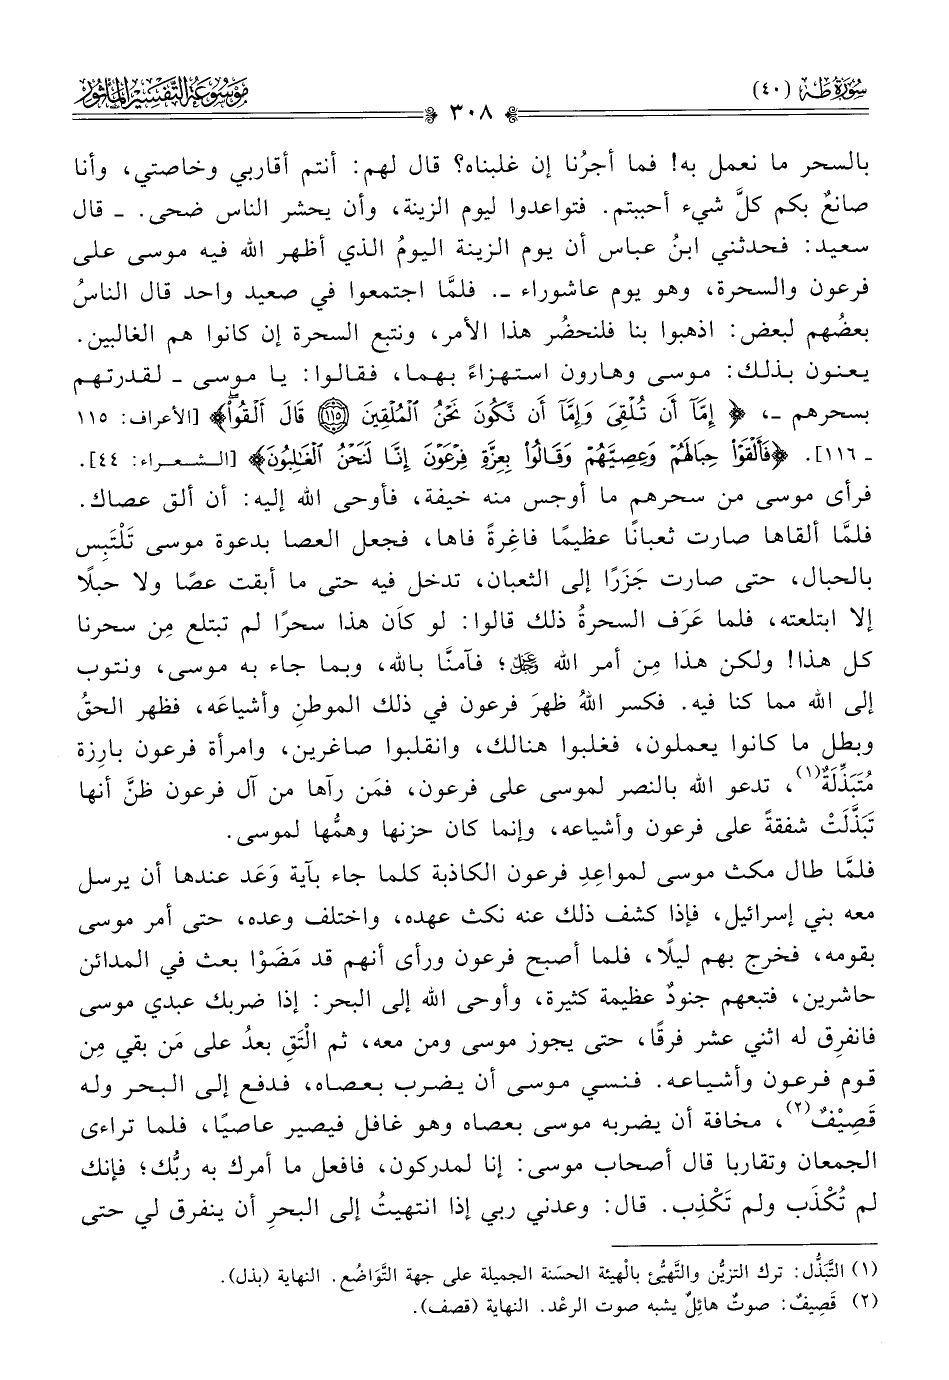 سُورَةُ طه (٤٠)
٣٠٨
موسوعة التفسير المأثور
بالسحر ما نعمل به! فما أجرُنا إن غلبناه؟ قال لهم: أنتم أقاربي وخاصتي، وأنا
صانعٌ بكم كلَّ شيء أحببتم. فتواعدوا ليوم الزينة، وأن يحشر الناس ضحى. ـ قال
سعيد: فحدثني ابنُ عباس أن يوم الزينة اليومُ الذي أظهر الله فيه موسى على
فرعون والسحرة، وهو يوم عاشوراء ـ. فلمَّا اجتمعوا في صعيد واحد قال الناسُ
بعضُهم لبعض: اذهبوا بنا فلنحضُر هذا الأمر، ونتبع السحرة إن كانوا هم الغالبين.
يعنون بذلك: موسى وهارون استهزاءً بهما، فقالوا: يا موسى ـ لقدرتهم
بسحرهم ـ، ﴿إِمَّآ أَن تُلْقِىَ وَإِمَّآ أَن نَّكُونَ نَحْنُ ٱلْمُلْقِينَ ۝١١٥ قَالَ أَلْقُوا۟ۖ﴾ [الأعراف: ١١٥
ـ ١١٦]. ﴿فَأَلْقَوْا۟ حِبَالَهُمْ وَعِصِيَّهُمْ وَقَالُوا۟ بِعِزَّةِ فِرْعَوْنَ إِنَّا لَنَحْنُ ٱلْغَـٰلِبُونَ﴾ [الشعراء: ٤٤].
فرأى موسى من سحرهم ما أوجس منه خيفة، فأوحى الله إليه: أن ألق عصاك.
فلمَّا ألقاها صارت ثعبانًا عظيمًا فاغِرةً فاها، فجعل العصا بدعوة موسى تَلْتَبِس
بالحبال، حتى صارت جَزَرًا إلى الثعبان، تدخل فيه حتى ما أبقت عصًا ولا حبلًا
إلا ابتلعته، فلما عَرَف السحرةُ ذلك قالوا: لو كان هذا سحرًا لم تبتلع مِن سحرنا
كل هذا! ولكن هذا مِن أمر الله ﷿؛ فآمنَّا بالله، وبما جاء به موسى، ونتوب
إلى الله مما كنا فيه. فكسر اللهُ ظهرَ فرعون في ذلك الموطنِ وأشياعَه، فظهر الحقُ
وبطل ما كانوا يعملون، فغلبوا هنالك، وانقلبوا صاغرين، وامرأة فرعون بارِزة
مُتَبَذِّلَةٌ(١)، تدعو الله بالنصر لموسى على فرعون، فمَن رآها من آل فرعون ظنَّ أنها
تَبَذَّلَتْ شفقةً على فرعون وأشياعه، وإنما كان حزنها وهمُّها لموسى.
فلمَّا طال مكث موسى لمواعِدِ فرعون الكاذبة كلما جاء بآية وَعَد عندها أن يرسل
معه بني إسرائيل، فإذا كشف ذلك عنه نكث عهده، واختلف وعده، حتى أمر موسى
بقومه، فخرج بهم ليلًا، فلما أصبح فرعون ورأى أنهم قد مَضَوْا بعث في المدائن
حاشرين، فتبعهم جنودٌ عظيمة كثيرة، وأوحى الله إلى البحر: إذا ضربك عبدي موسى
فانفرِق له اثني عشر فرقًا، حتى يجوز موسى ومن معه، ثم الْتَقِ بعدُ على مَن بقي مِن
قوم فرعون وأشياعه. فنسي موسى أن يضرب بعصاه، فدفع إلى البحر وله
قَصِيْفٌ(٢)، مخافة أن يضربه موسى بعصاه وهو غافل فيصير عاصيًا، فلما تراءى
الجمعان وتقاربا قال أصحاب موسى: إنا لمدركون، فافعل ما أمرك به ربُّك؛ فإنك
لم تُكْذَب ولم تَكْذِب. قال: وعدني ربي إذا انتهيتُ إلى البحرِ أن ينفرق لي حتى
(١) التَّبَذُّل: ترك التزيُّن والتَّهيُّئ بالْهيئة الحسَنة الجميلة على جهة التَّوَاضُع. النهاية (بذل).
(٢) قَصِيفٌ: صوتٌ هائِلٌ يشبه صوت الرعْد. النهاية (قصف).